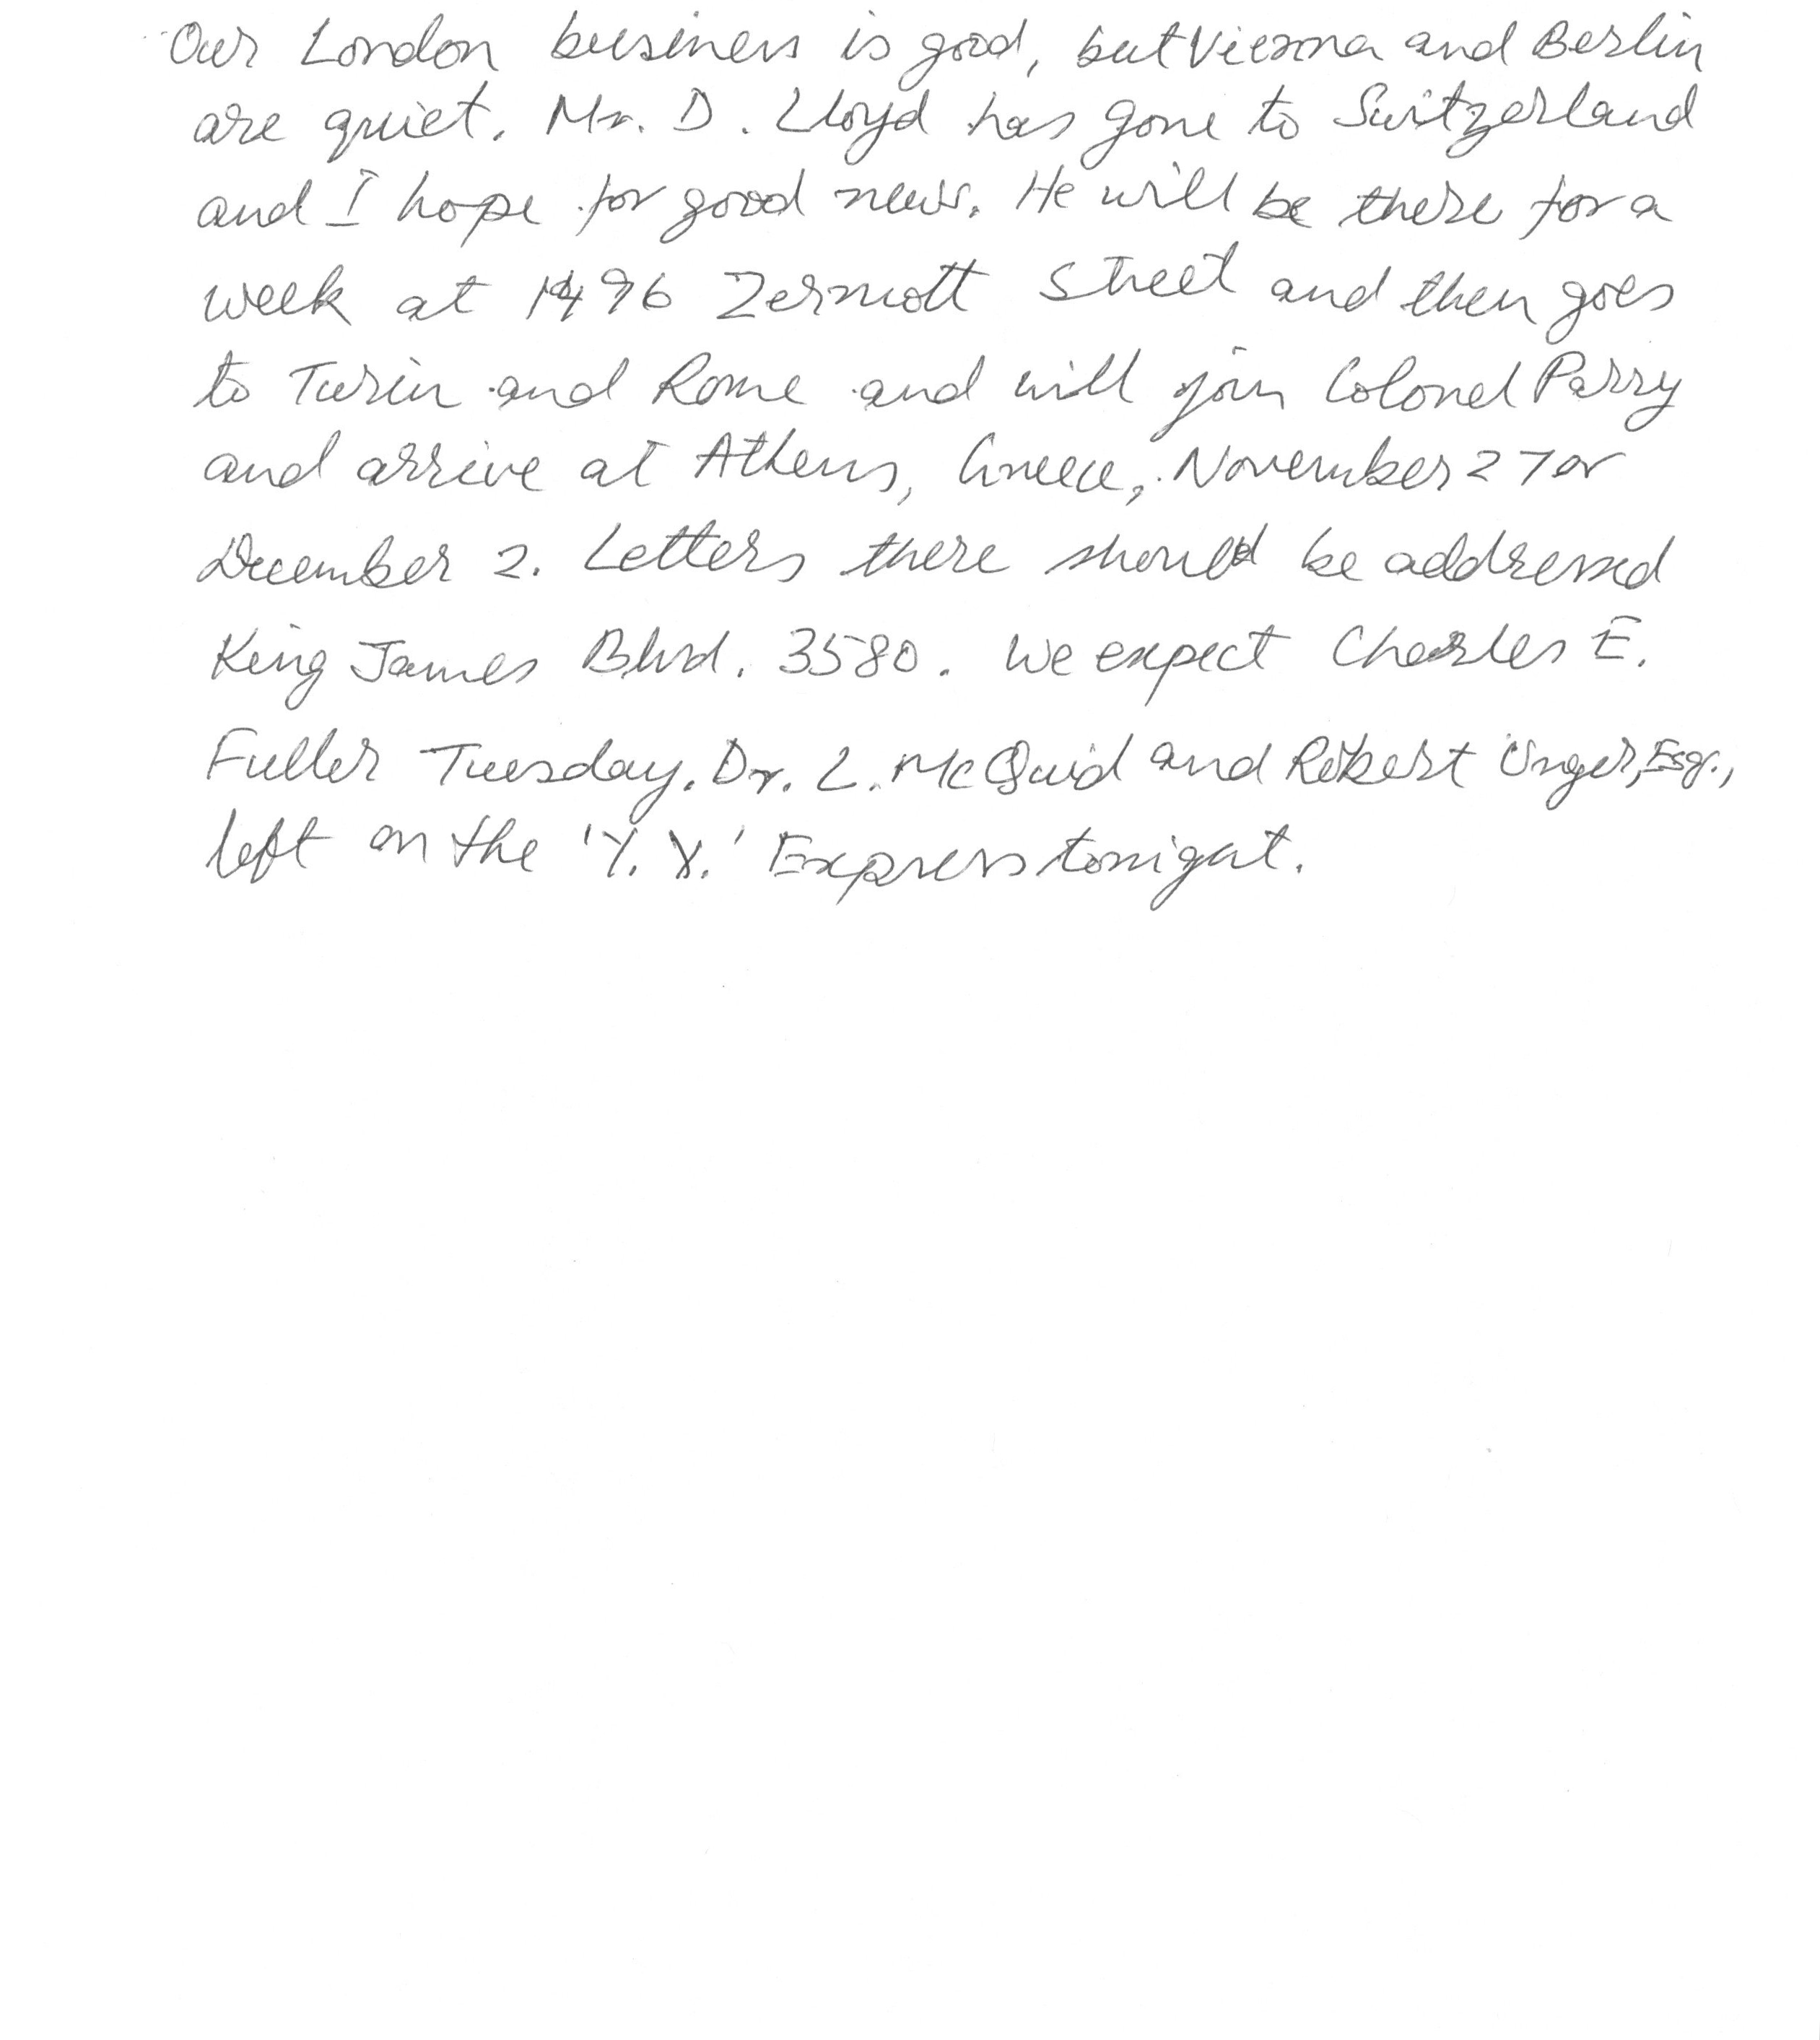 Our London business is good, but Vienna and Berlin
are quiet. Mr. D. Lloyd has gone to Switzerland
and I hope for good news. He will be there for a
week at 1496 Zermott Street and then goes
to Turin and Rome and will join Colonel Parry
and arrive at Athens, Greece, November 27 or
December 2. Letters there should be addressed
King James Blvd. 3580. We expect Charles E.
Fuller Tuesday. Dr. L. McQuid and Robert Unger, Esq.,
left on the 'Y. X.' Express tonight.